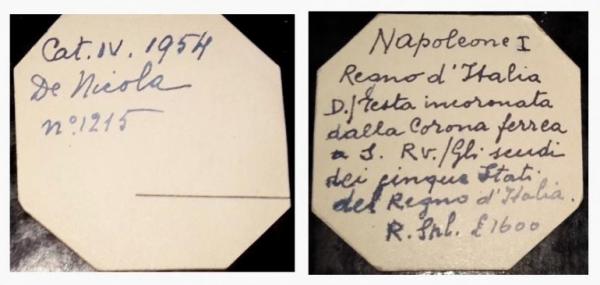 Cat. IV. 1954
De Nicola
n° 1215
Napoleone I
Regno d'Italia
D./Testa incoronata
dalla Corona ferrea
a S. Rv./Gli scudi
dei cinque Stati
del Regno d'Italia.
R. Spl. £1600